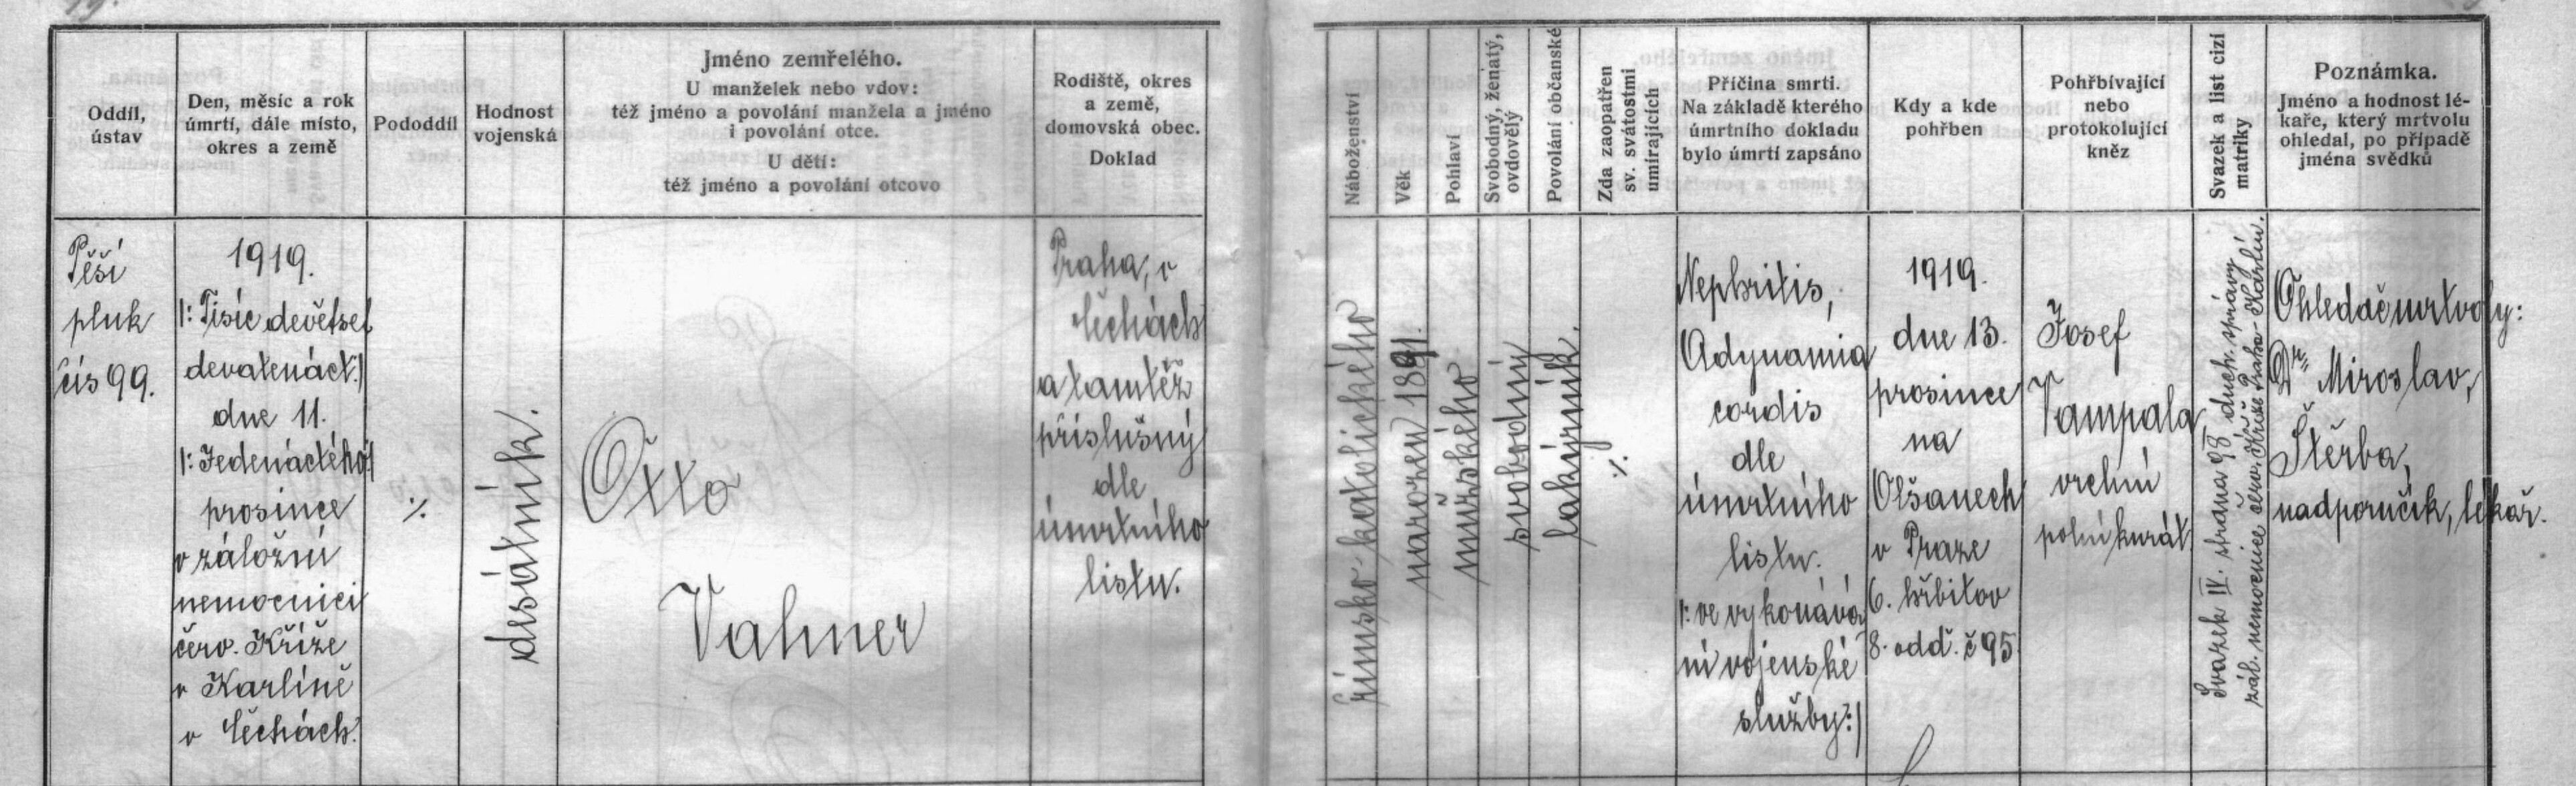 Oddíl,
ústav
Den, měsíc a rok
úmrtí, dále místo,
okres a země
Pododdíl
Hodnost
vojenská
Jméno zemřelého.
U manželek nebo vdov:
též jméno a povolání manžela a jméno
i povolání otce.
U dětí:
též jméno a povolání otcovo
Rodiště, okres
a země,
domovská obec.
Doklad
Náboženství
Věk
Pohlaví
Svobodný, ženatý,
ovdovělý
Povolání občanské
Zda zaopatřen
sv. svátostmi
umírajících
Příčina smrti.
Na základě kterého
úmrtního dokladu
bylo úmrtí zapsáno
Kdy a kde
pohřben
Pohřbívající
nebo
protokolující
kněz
Svazek a list cizí
matriky
Poznámka.
Jméno a hodnost lé-
kaře, který mrtvolu
ohledal, po případě
jména svědků
Pěší
pluk
čís 99.
1919.
/: Tisíc devětset
devatenáct:/
dne 11.
/: Jedenáctého:/
prosince
v záložní
nemocnici
červ. Kříže
v Karlíně
v Čechách.
·/.
desátník.
Otto
Vahner
Praha, v
Čechách
a tamtéž
příslušný
dle
úmrtního
listu.
římsko-katolického
narozen 1891.
mužského
svobodný
lakýrník.
·/.
Nephritis,
Adynamia
cordis
dle
úmrtního
listu.
/: ve vykonává-
ní vojenské
služby:/
1919.
dne 13.
prosince
na
Olšanech
v Praze
6. hřbitov
8. odd. č 95
Josef
Vampola,
vrchní
polní kurát
Svazek IV. strana 98 duch. správy
zál. nemocnice červ. Kříže Praha-Karlín.
Ohledač mrtvoly:
Dr. Miroslav
Štěrba,
nadporučík, lékař.